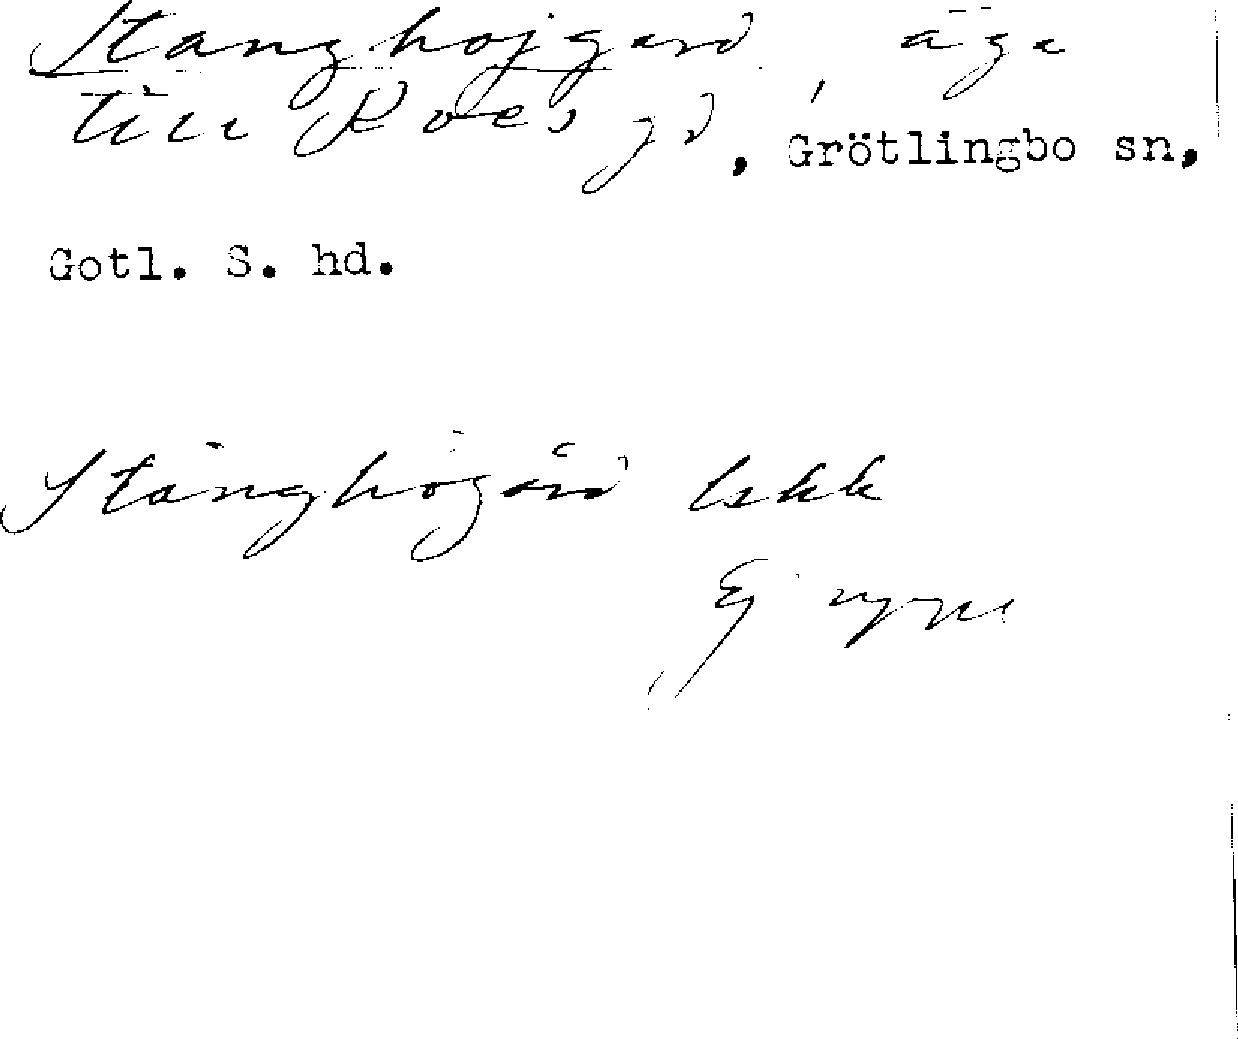 Stanghojgard, äga
till Roes gd, Grötlingbo sn,
Gotl. S. hd.
Stänghögård
Ej